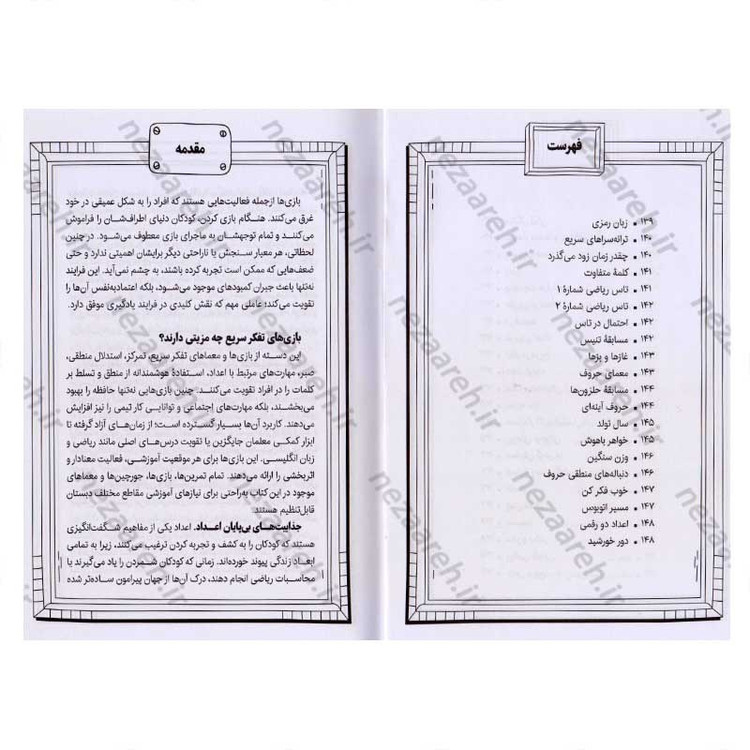 فهرست
۱۳۹ • زبان رمزی
۱۴۰ • ترانه‌سراهای سریع
۱۴۰ • چقدر زمان زود می‌گذرد
۱۴۱ • کلمهٔ متفاوت
۱۴۱ • تاس ریاضی شمارهٔ ۱
۱۴۲ • تاس ریاضی شمارهٔ ۲
۱۴۲ • احتمال در تاس
۱۴۲ • مسابقهٔ تنیس
۱۴۳ • غازها و بزها
۱۴۳ • معمای حروف
۱۴۴ • مسابقهٔ حلزون‌ها
۱۴۴ • حروف آینه‌ای
۱۴۵ • سال تولد
۱۴۵ • خواهر باهوش
۱۴۶ • وزن سنگین
۱۴۶ • دنباله‌های منطقی حروف
۱۴۷ • خوب فکر کن
۱۴۷ • مسیر اتوبوس
۱۴۸ • اعداد دو رقمی
۱۴۸ • دور خورشید
مقدمه
بازی‌ها ازجمله فعالیت‌هایی هستند که افراد را به شکل عمیقی در خود
غرق می‌کنند. هنگام بازی کردن، کودکان دنیای اطراف‌شان را فراموش
می‌کنند و تمام توجهشان به ماجرای بازی معطوف می‌شود. در چنین
لحظاتی، هر معیار سنجش یا ناراحتی دیگر برایشان اهمیتی ندارد و حتی
ضعف‌هایی که ممکن است تجربه کرده باشند، به چشم نمی‌آید. این فرایند
نه‌تنها باعث جبران کمبودهای موجود می‌شود، بلکه اعتمادبه‌نفس آن‌ها را
تقویت می‌کند؛ عاملی مهم که نقش کلیدی در فرایند یادگیری موفق دارد.
بازی‌های تفکر سریع چه مزیتی دارند؟
این دسته از بازی‌ها و معماهای تفکر سریع، تمرکز، استدلال منطقی،
صبر، مهارت‌های مرتبط با اعداد، استفادهٔ هوشمندانه از منطق و تسلط بر
کلمات را در افراد تقویت می‌کنند. چنین بازی‌هایی نه‌تنها حافظه را بهبود
می‌بخشند، بلکه مهارت‌های اجتماعی و توانایی کار تیمی را نیز افزایش
می‌دهند. کاربرد آن‌ها بسیار گسترده است؛ از زمان‌های آزاد گرفته تا
ابزار کمکی معلمان جایگزین یا تقویت درس‌های اصلی مانند ریاضی و
زبان انگلیسی. این بازی‌ها برای هر موقعیت آموزشی، فعالیت معنادار و
اثربخشی را ارائه می‌دهند. تمام تمرین‌ها، بازی‌ها، جورچین‌ها و معماهای
موجود در این کتاب به‌راحتی برای نیازهای آموزشی مقاطع مختلف دبستان
قابل‌تنظیم هستند.
جذابیت‌های بی‌پایان اعداد. اعداد یکی از مفاهیم شگفت‌انگیزی
هستند که کودکان را به کشف و تجربه کردن ترغیب می‌کنند، زیرا به تمامی
ابعاد زندگی پیوند خورده‌اند. زمانی که کودکان شمردن را یاد می‌گیرند یا
محاسبات ریاضی انجام دهند، درک آن‌ها از جهان پیرامون ساده‌تر شده
nezaareh.ir